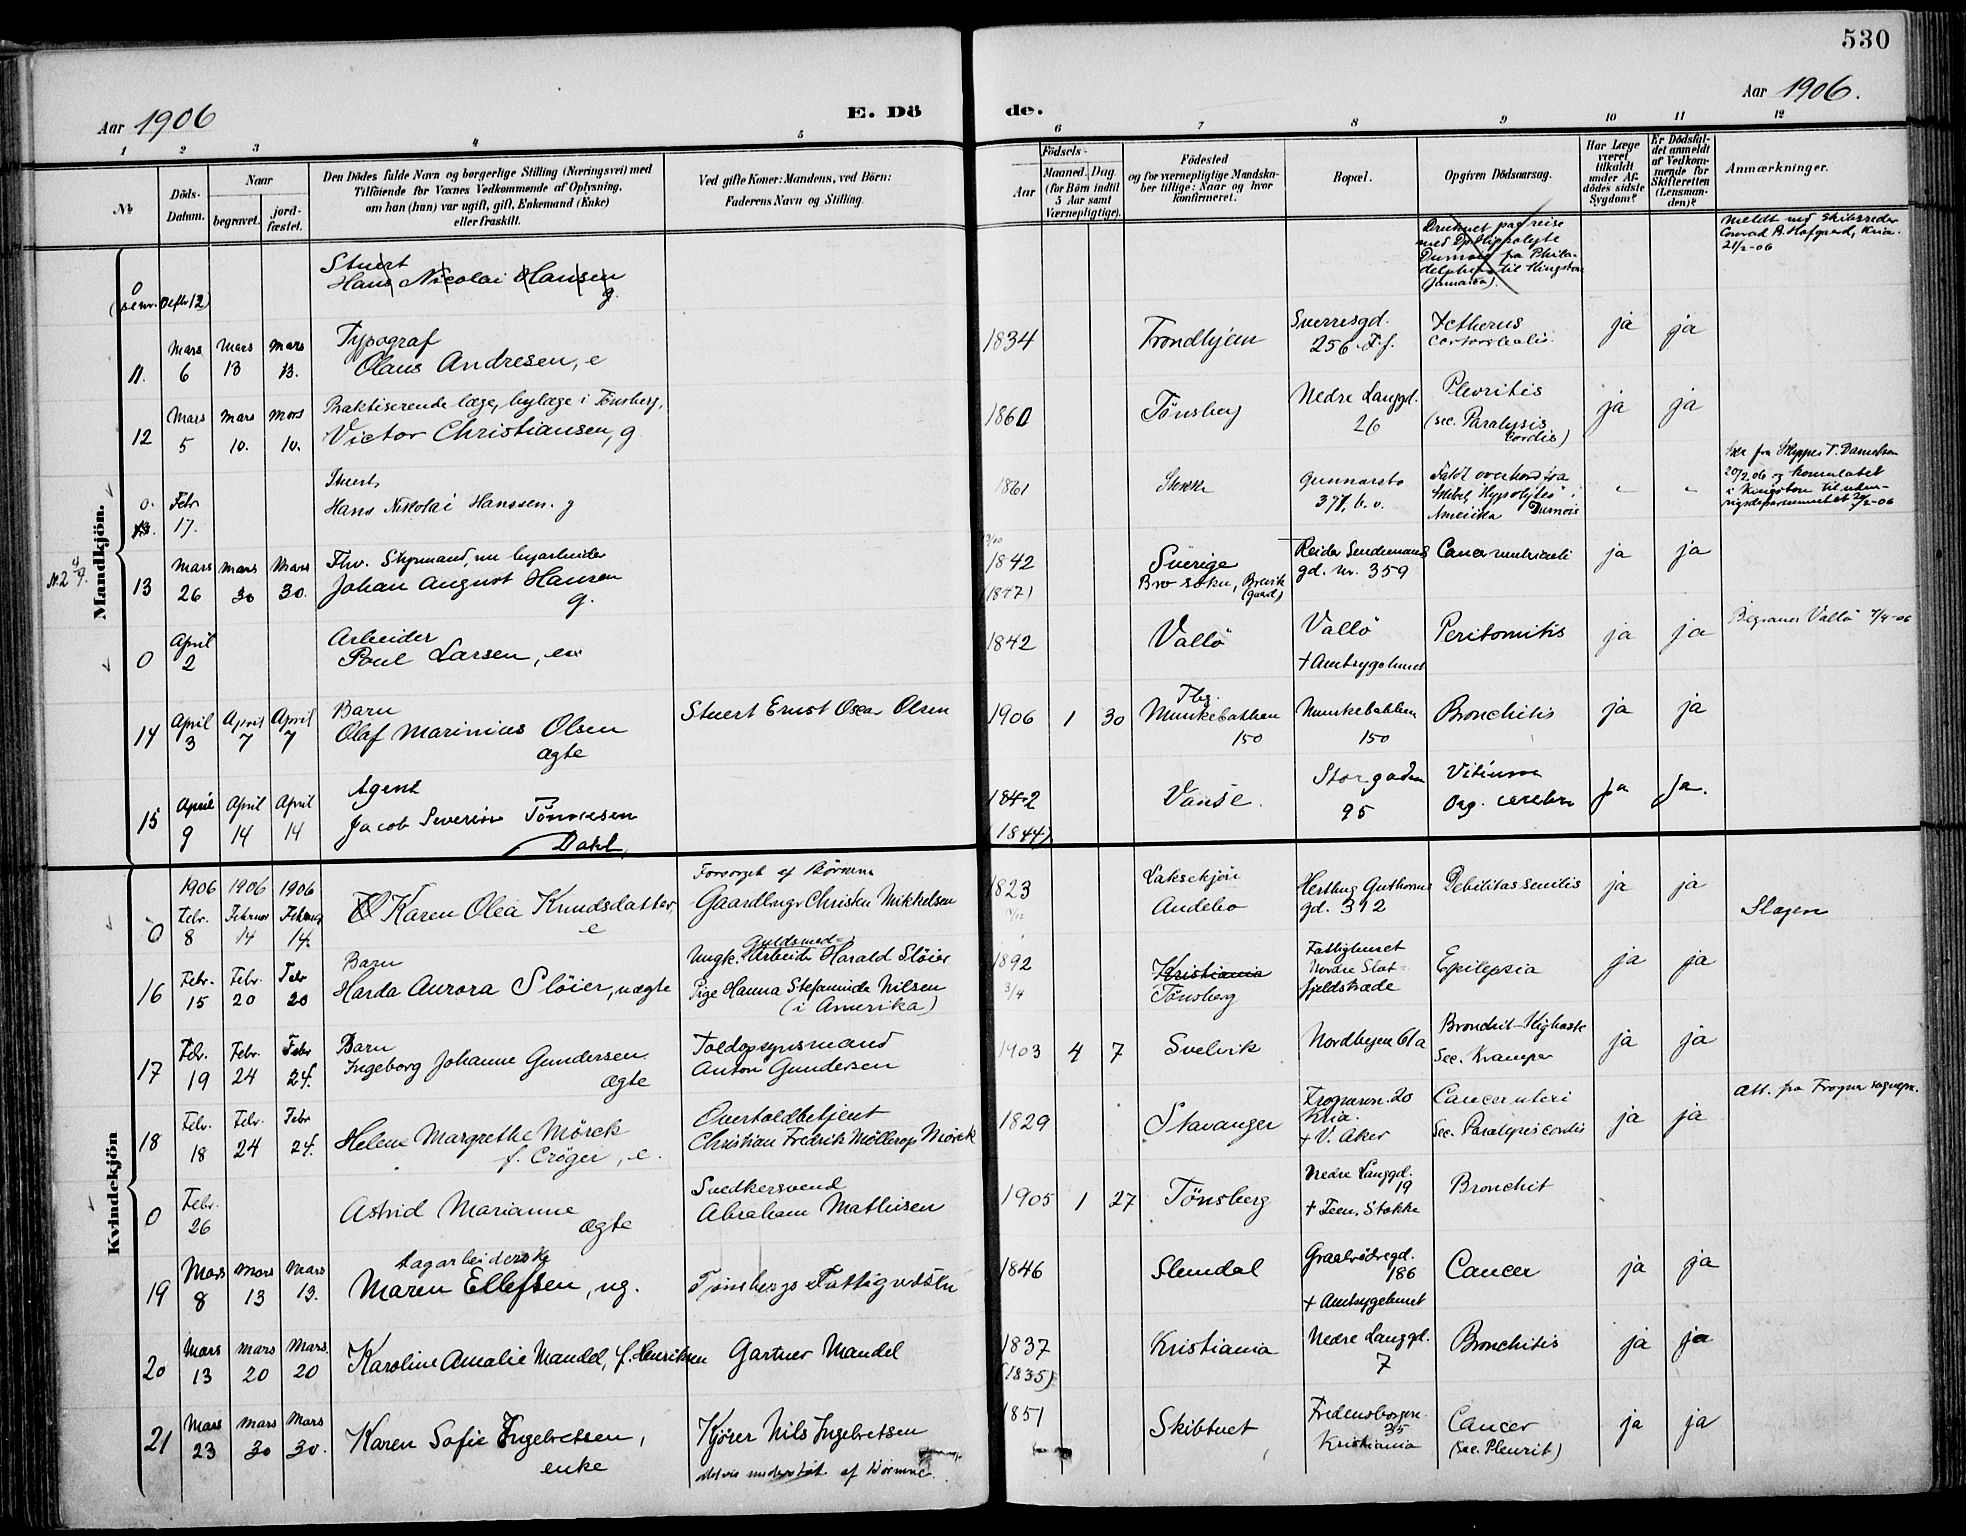 530
Aar 1906
E. Dö
de.
Aar 1906.
1 2 3 4 5 6 7 8 9 10 11 12
No
Döds-Datum.
Naar
begravet.
jord-fæstet.
Den Dödes fulde Navn og borgerlige Stilling (Næringsvei) med
Tilföiende for Voxnes Vedkommende af Oplysning,
om han (hun) var ugift, gift, Enkemand (Enke)
eller fraskilt.
Ved gifte Koner: Mandens, ved Börn:
Faderens Navn og Stilling.
Födsels-
Aar
Maaned. Dag.
(for Börn indtil
5 Aar samt
Værnepligtige).
Födested
og for værnepligtige Mandska-
ber tillige: Naar og hvor
konfirmeret.
Bopæl.
Opgiven Dödsaarsag.
Har Læge
været
tilkaldt
under Af-
dödes sidste
Sygdom?
Er Dödsfal-
det anmeldt
af Vedkom-
mende for
Skifteretten
(Lensman-
den)?
Anmærkninger.
Mandkjön.
0
Stuert
Hans Nicolai Hansen
g.
Druknet paa reise
til Kingston
Jamaica).
Meldt ved Skibsreder
21/2-06
11. Mars 6 Mars 13 Mars 13.
Typograf
Olaus Andresen, e
1834 Trondhjem
Sverresgd.
256
ja ja
12 Mars 5 Mars 10. Mars 10.
Praktiserende læge, bylæge i Tönsberg,
Victor Christiansen, g
1860 Tønsberg
Nedre Langgd.
26
Plevritis
(sec. Paralysis
Cordis)
ja ja
0. Febr 17.
Stuert
Hans Nikolai Hanssen. g
1861
Gunnarsbo
Faldt overbord fra
Amerika
13 Mars 26 Mars 30 Mars 30.
Fhv. Styrmand, nu byarbeider
Johan August Hansen
g.
1842
(1847)
Sverige
Bro sokn, Brevik
(gaard)
gd. nr. 359
Cancer ventriculi
ja ja
0 April 2
Arbeider
Poul Larsen, em
1842 Vallö
Vallö
+ Amtsygehuset
Peritonitis
ja ja
Begraves Vallö 7/4-06
14 April 3 April 7 April 7
Barn
Olaf Marinius Olsen
ægte
Stuert Ernst Oscar Olsen
1906 1 30
Tbg.
Munkebakken
150
Munkebakken
150
Bronchitis
ja ja
15 April 9 April 14 April 14
Agent
Jacob Severin Tönnesen
Dahl,
1842
(1844)
Vanse.
Storgaden
95
Vitium
org. cerebri
Ja Ja.
Kvindekjön
0 1906 Febr. 8 1906 Februar 14 1906 Februar 14.
Karen Olea Knudsdatter,
e
Forsörget af Börnene
Gaardbruger Christen Mikkelsen
1823
Andebo
gd. 392
Debilitas senilis
ja ja
Slagen
16 Febr. 15 Febr. 20 Febr 20
Barn
Harda Aurora Slöier, uægte
Guldsmed-
Ungk. Arbeider Harald Slöier
Pige Hanna Stefanuide Nilsen
(i Amerika)
1892
3/4
Kristiania
Tönsberg
Fattighuset
Nordre Slot-
fjeldstræde
Epilepsia
ja ja
17 Febr. 19 Febr. 24 Febr 24.
Barn
Ingeborg Johanne Gundersen
ægte
Toldopsynsmand
Anton Gundersen
1903 4 7
Svelvik
Nordbyen 61a
Bronchit-Kighoste
Sec. Kramper
ja ja
18 Febr. 18 Febr. 24 Febr 24.
Helene Margrethe Mörck
f. Cröger, e.
Overtoldbetjent
Christian Fredrik Möllerop Mörck
1829 Stavanger
Frognerv. 20
Kria.
+ V. Aker
Cancer uteri
Sec. Paralysis cordis
ja ja
Att. fra Frogner sognepr.
0 Febr. 26
Astrid Marianne
ægte
Snedkersvend
Abraham Mathisen
1905 1 27
Tønsberg
Nedre Langgd.
19
+ Feen, Stokke
Bronchit
19 Mars 8 Mars 13 Mars 13.
Dagarbeiderske
Maren Ellefsen, ug.
Tönsbergs Fattigvæsen
1846 Slemdal
Graabrödregd.
186
+ Amtsygehuset
Cancer
ja ja
20 Mars 13 Mars 20 Mars. 20
Karoline Amalie Mandel, f. Henriksen
Gartner Mandel
1837
(1835)
Kristiania
Nedre Langgd.
7
Bronchitis
ja ja
21 Mars 23 Mars 30 Mars 30.
Karen Sofie Ingebretsen,
enke
Kjörer Nils Ingebretsen
delvis understöt af Börnene.
1851
Skibtvet
Fredensborgv.
35
Kristiania
Cancer
(Sec. Pleurit)
ja ja